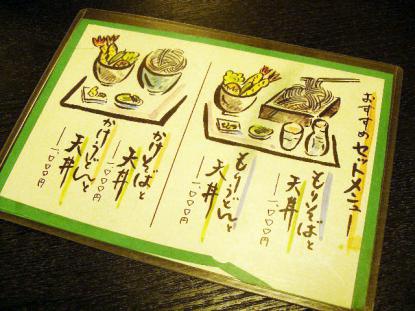 おすすめセットメニュー
もりそばと
天丼
一、〇〇〇円
もりうどんと
天丼
一、〇〇〇円
かけそばと
天丼
一、〇〇〇円
かけうどんと
天丼
一、〇〇〇円